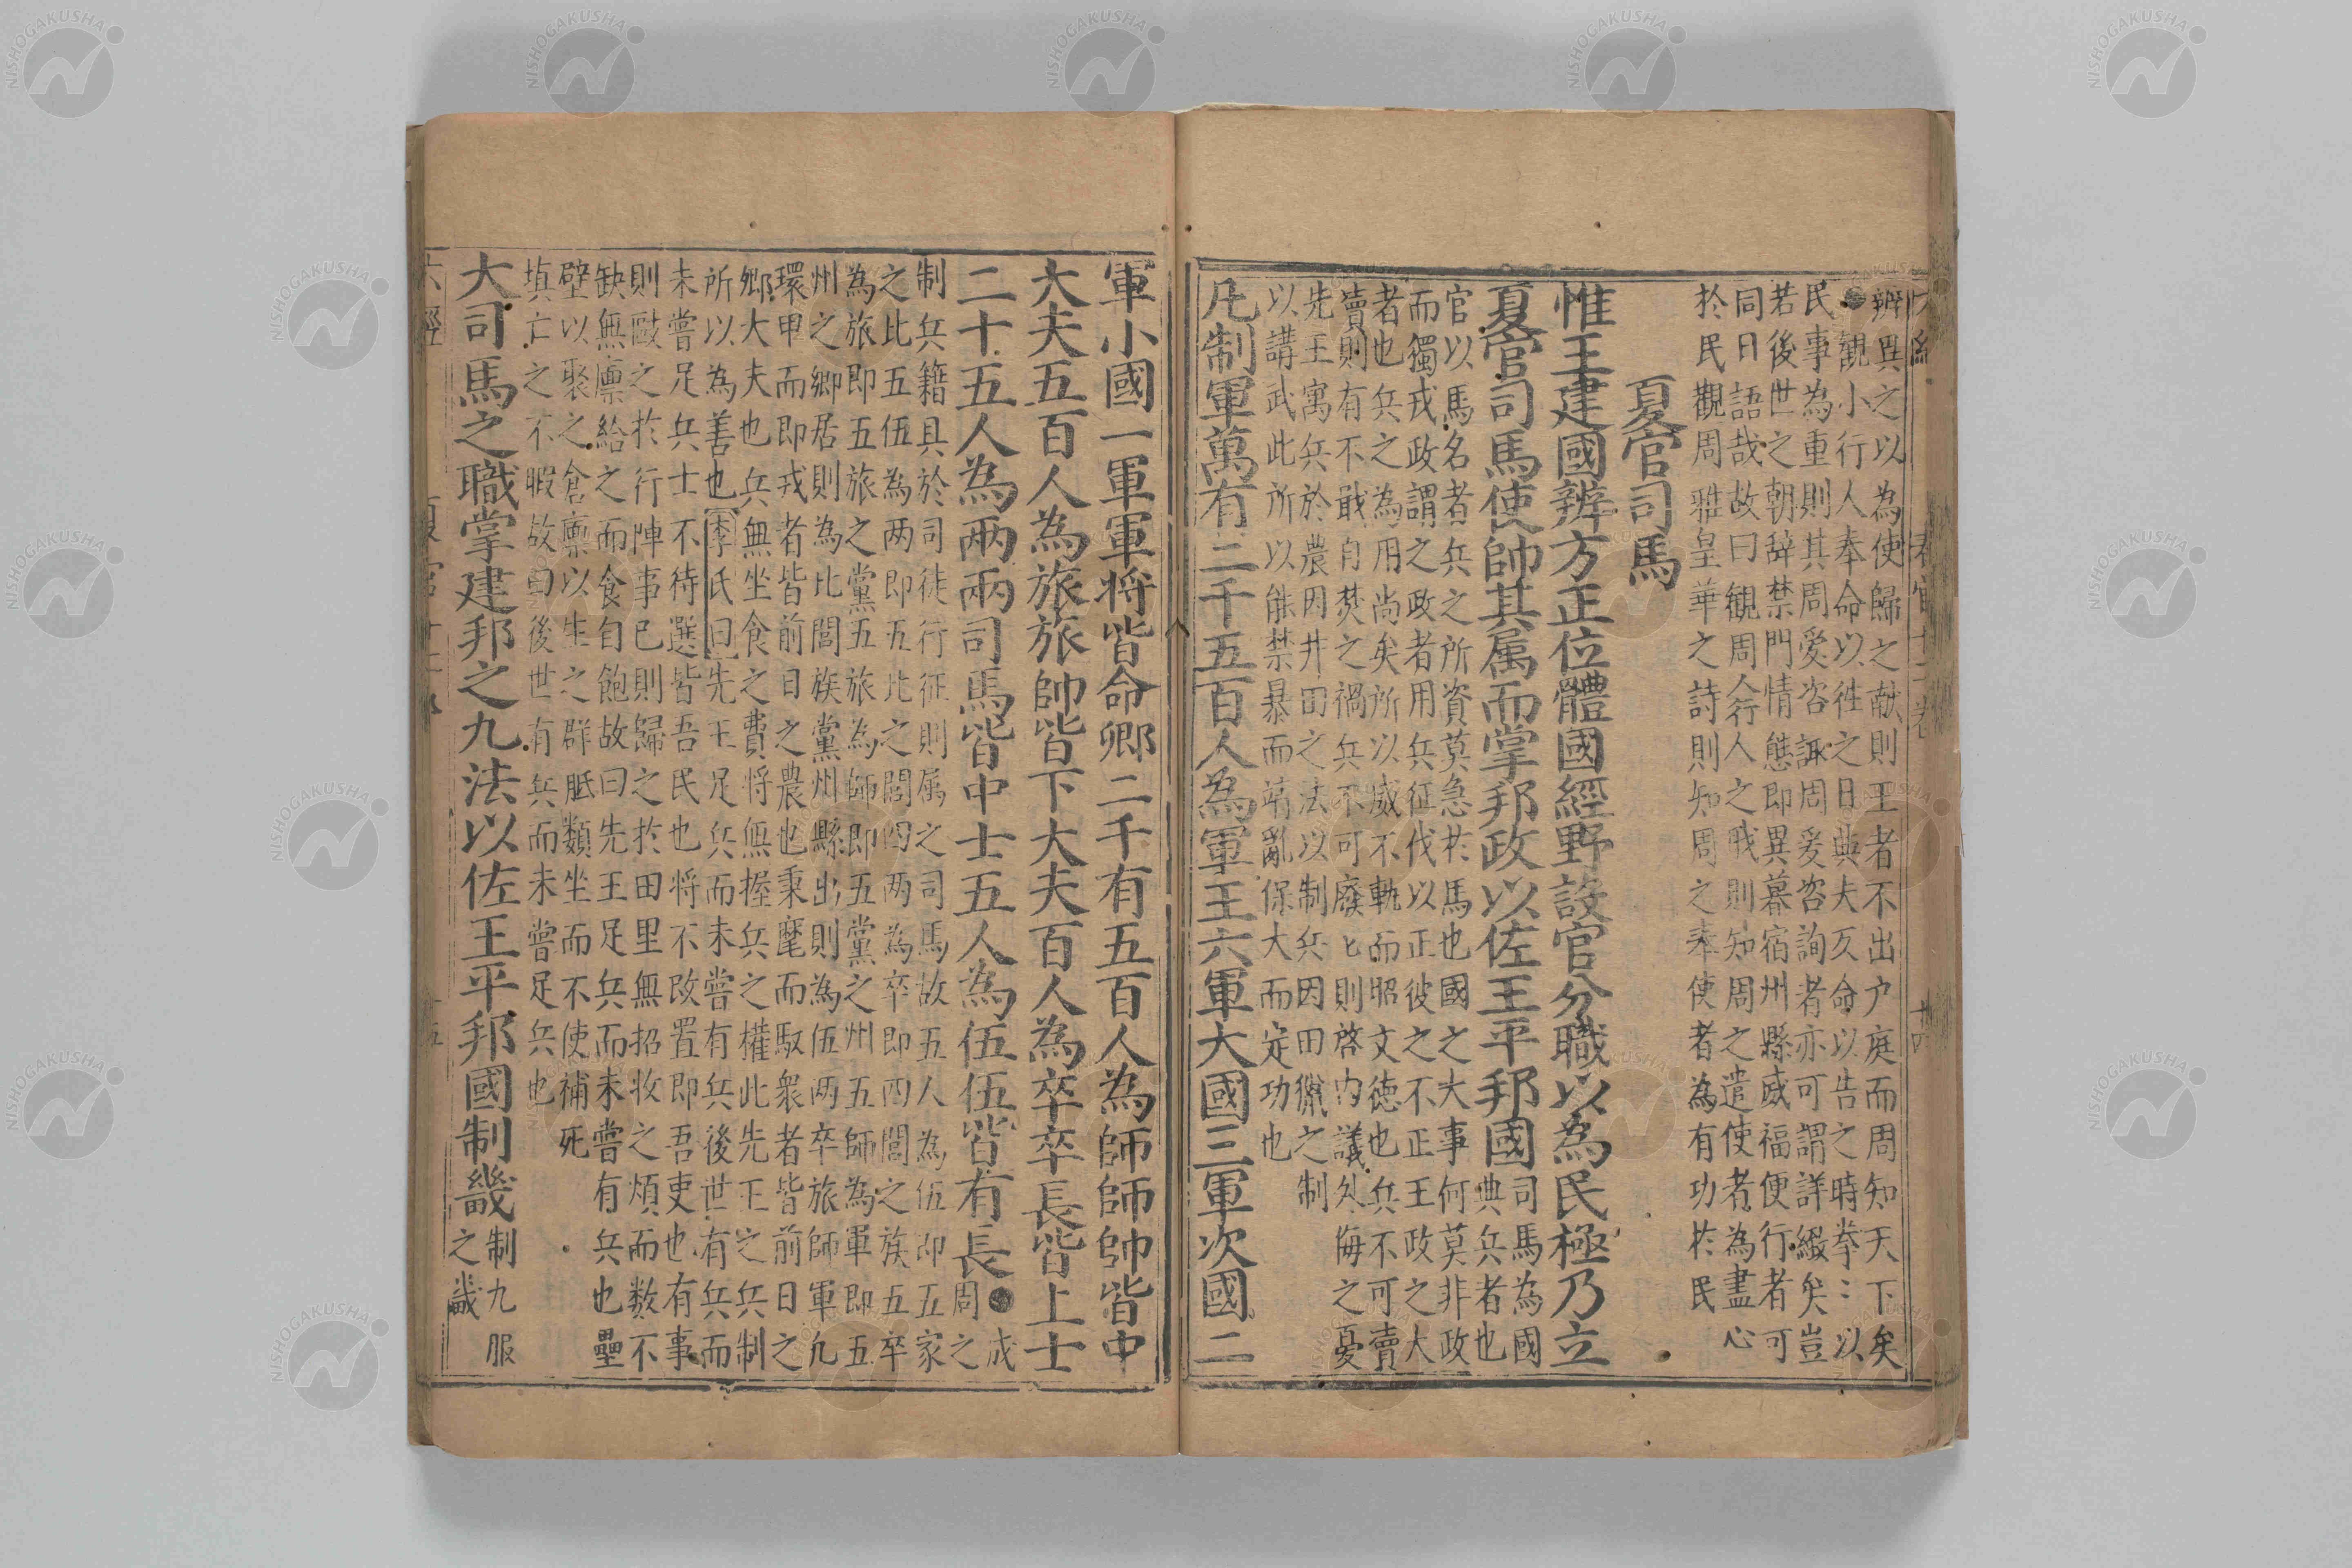 辨異之以為使歸之献則王者不出户庭而周知天下矣
●觀小行人奉命以徃之日典夫反命以告之時拳〻以
民事為重則其周爰咨諏周爰咨詢者亦可謂詳緻矣豈
若後世之朝辞禁門情態即異暮宿州縣威福便行者可
同日語哉故曰観周人行人之戒則知周之遣使者為盡心
於民觀周雅皇華之詩則知周之奉使者為有功於民
夏官司馬
惟王建國辨方正位體國經野設官分職以為民極乃立
夏官司馬使帥其属而掌邦政以佐王平邦國司馬為國
典兵者也
官以馬名者兵之所資莫急於馬也國之大事何莫非政
而獨戎政謂之政者用兵征伐以正彼之不正王政之大
者也兵之為用尚矣所以威不軌而昭文徳也兵不可黷
黷則有不戢自焚之禍兵不可廢〻則啓内議外侮之憂
先王寓兵於農因井田之法以制兵因田獵之制
以講武此所以能禁暴而靖亂保大而定功也
凡制軍萬有二千五百人為軍王六軍大國三軍次國二
軍小國一軍軍将皆命卿二千有五百人為師師帥皆中
大夫五百人為旅旅帥皆下大夫百人為卒卒長皆上士
二十五人為兩兩司馬皆中士五人為伍伍皆有長●成
周之
制兵籍具於司徒行征則属之司馬故五人為伍即五家
之比五伍為两即五比之閭四两為卒即四閭之族五卒
為旅即五旅之黨五旅為師即五黨之州五師為軍即五
州之鄉居則為比閭族黨州縣出則為伍两卒旅師軍凡
環甲而即戎者皆前日之農也秉麾而馭衆者皆前日之
鄉大夫也兵無坐食之費將無握兵之權此先王之兵制
所以為善也李氏曰先王足兵而未嘗有兵後世有兵而
未嘗足兵士不待選皆吾民也将不改置即吾吏也有事
則敺之於行陣事已則歸之於田里無招收之煩而数不
缺無廪給之而食自飽故曰先王足兵而未嘗有兵也壘
壁以聚之倉廪以生之群胝類坐而不使補死
填亡之不暇故曰後世有兵而未嘗足兵也
大司馬之職掌建邦之九法以佐王平邦國制畿制九服
之畿